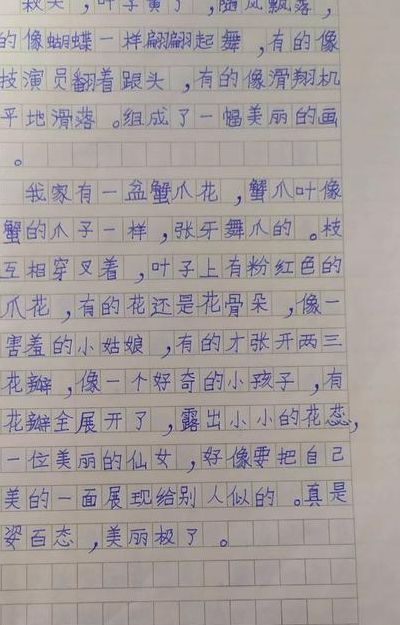 秋天，叶子黄了，随风飘落，
的像蝴蝶一样翩翩起舞，有的像
技演员翻着跟头，有的像滑翔机
平地滑落。组成了一幅美丽的画
。
我家有一盆蟹爪花，蟹爪叶像
蟹的爪子一样，张牙舞爪的。枝
互相穿叉着，叶子上有粉红色的
爪花，有的花还是花骨朵，像一
害羞的小姑娘，有的才张开两三
花瓣，像一个好奇的小孩子，有
花瓣全展开了，露出小小的花蕊，
一位美丽的仙女，好像要把自己
美的一面展现给别人似的。真是
姿百态，美丽极了。